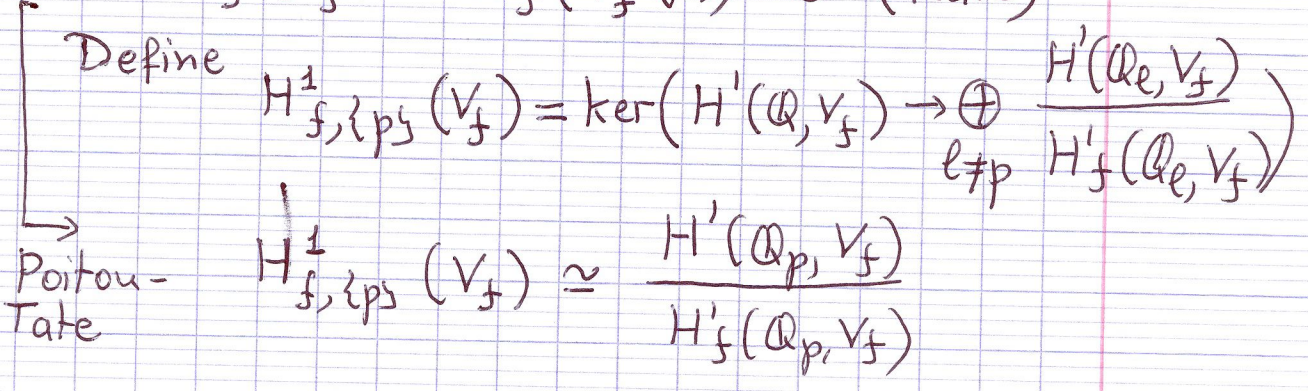 Define
H^1_{f,{p}}(V_f) = ker(H'(Q,V_f) → ⊕_{ℓ≠p} H'(Q_ℓ,V_f) / H'_f(Q_ℓ,V_f))
Poitou-
Tate
H^1_{f,{p}}(V_f) ≃ H'(Q_p,V_f) / H'_f(Q_p,V_f)